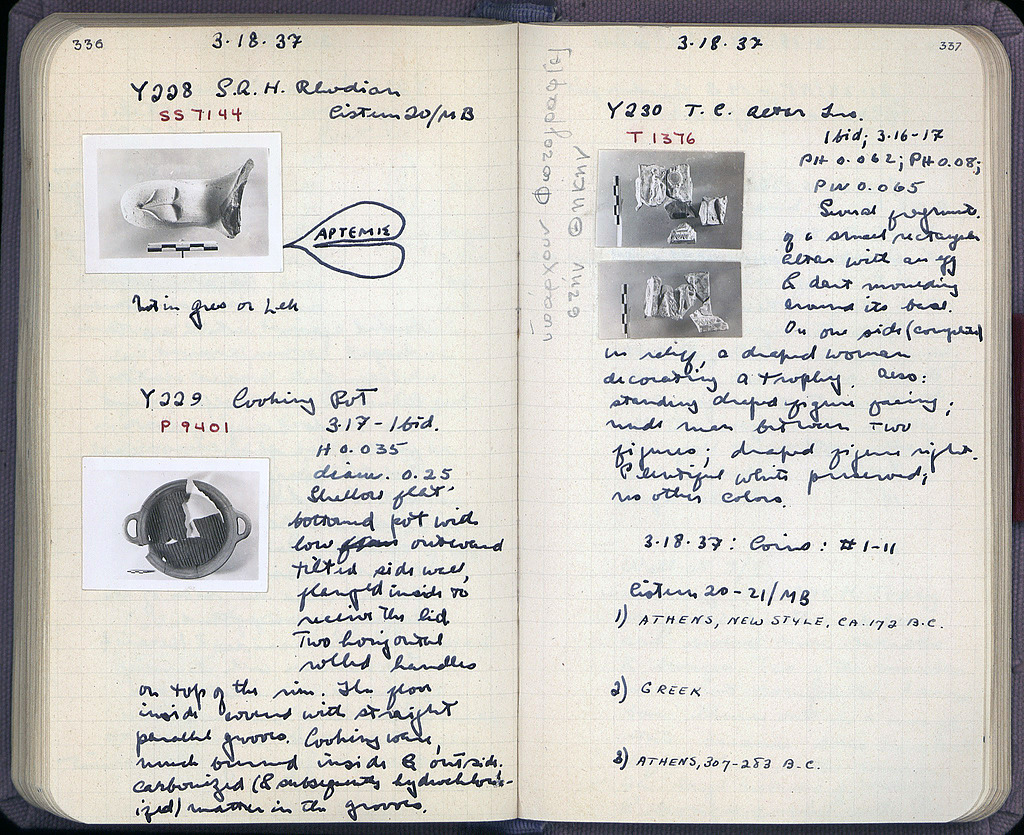 336
3·18·37
Y228 S.A.H. Rhodian
SS 7144
Cistern 20/MB
ΑΡΤΕΜΙΣ
Not in Grace or Lek
Y229 Cooking Pot
P 9401
3·17 - Ibid.
H 0.035
diam. 0.25
Shallow flat
bottomed pot with
low outward
tilted side wall,
flanged inside to
receive the lid
Two horizontal
rolled handles
on top of the rim. The floor
inside covered with straight
parallel grooves. Cooking ware,
much burned inside & outside.
carbonized (& subsequently hydrochlor-
ized) matter in the grooves.
337
3·18·37
Y230 T.C. altar
T 1376
Ibid; 3·16-17
PH 0.062; PH 0.08;
PW 0.065
Several fragments
of a small rectangular
altar with an egg
& dart moulding
around its base.
On one side (completed)
in relief, a draped woman
decorating a trophy. Also:
standing draped figure facing;
nude man between two
figures; draped figure right.
Plentiful white preserved;
no other colors.
ὑπάρχουν Φωτογραφ
εἰς Θήκην
3·18·37: Coins: #1-11
Cistern 20-21/MB
1) ATHENS, NEW STYLE, CA. 172 B.C.
2) GREEK
3) ATHENS, 307-283 B.C.